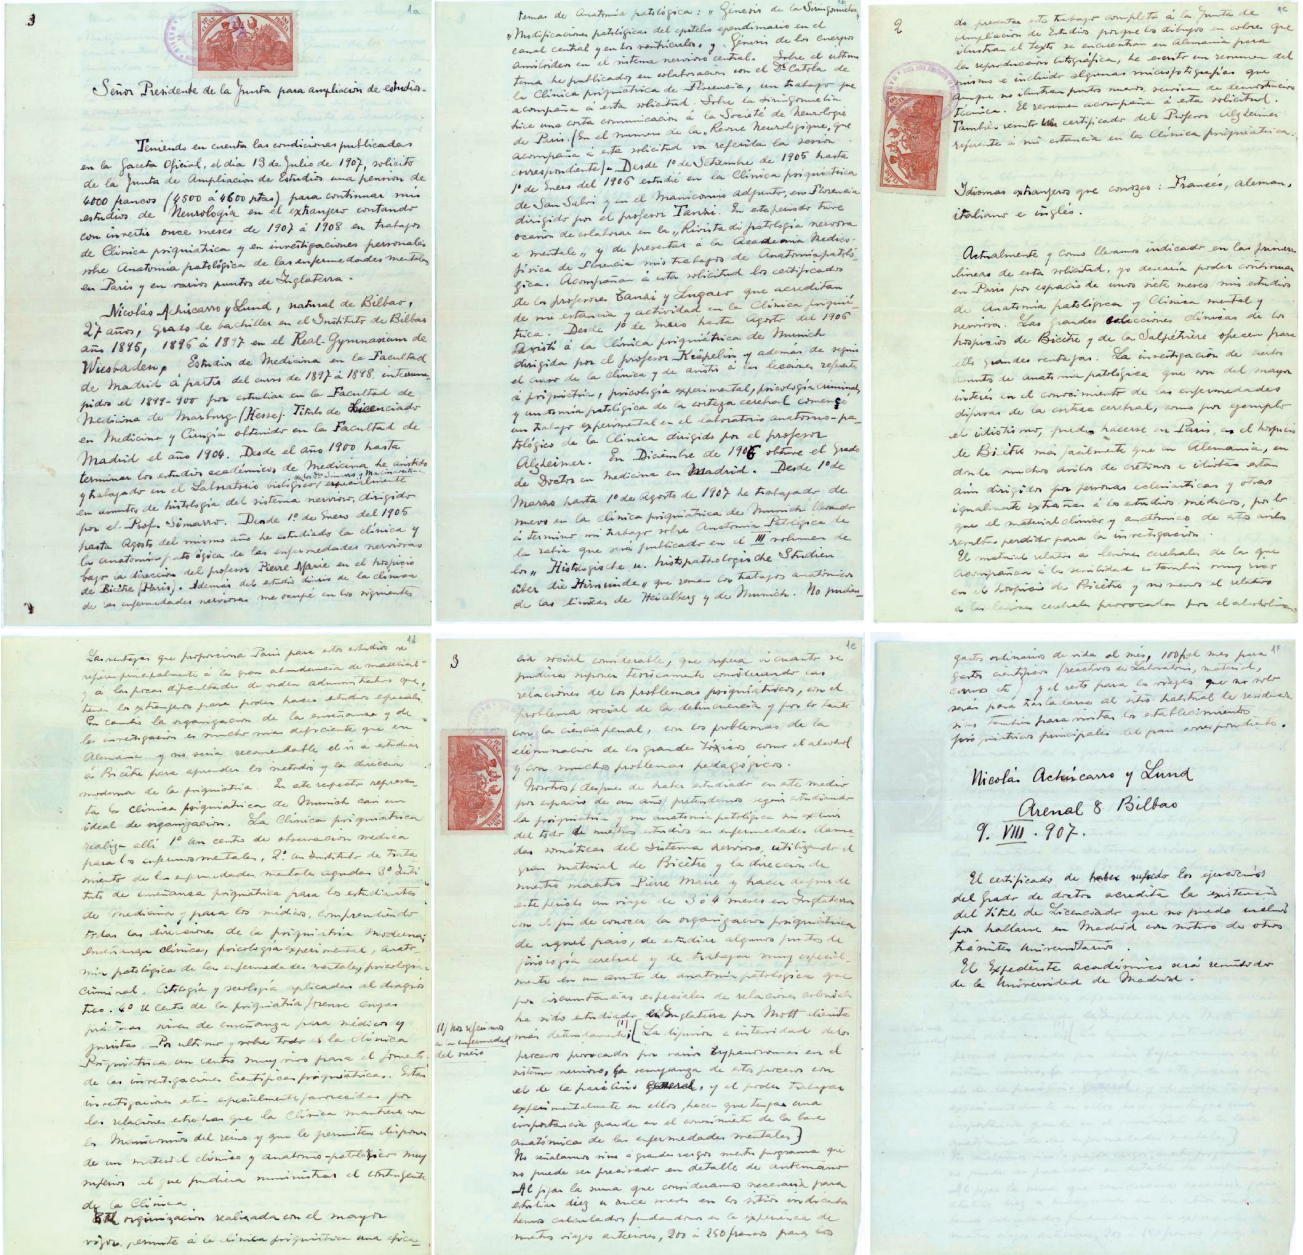 3
1a
Señor Presidente de la Junta para ampliación de estudios.
Teniendo en cuenta las condiciones publicadas
en la Gaceta Oficial, el dia 13 de Julio de 1907, solicito
de la Junta de Ampliacion de Estudios una pension de
4000 francos (4500 á 4600 ptas) para continuar mis
estudios de Neurología en el extranjero contando
con invertir once meses de 1907 á 1908 en trabajos
de Clinica psiquiátrica y en investigaciones personales
sobre Anatomía patológica de las enfermedades mentales
en Paris y en varios puntos de Inglaterra.
Nicolás Achúcarro y Lund, natural de Bilbao,
27 años, grado de bachiller en el Instituto de Bilbao
año 1895, 1896 á 1897 en el Real-Gymnasium de
Wiesbaden. Estudios de Medicina en la Facultad
de Madrid á partir del curso de 1897 á 1898, interrum-
pidos el 1899-900 por estudiar en la Facultad de
Medicina de Marburg (Hesse). Titulo de Licenciado
en Medicina y Cirugía obtenido en la Facultad de
Madrid el año 1904. Desde el año 1900 hasta
terminar los estudios académicos de Medicina he asistido
y trabajado en el Laboratorio biológico especialmente
en asuntos de histología del sistema nervioso, dirigido
por el Prof. Simarro. Desde 1º de Enero del 1905
hasta Agosto del mismo año he estudiado la clínica y
la anatomía patológica de las enfermedades nerviosas
bajo la direccion del profesor Pierre Marie en el hospicio
de Bicêtre (Paris). Además del estudio diario de la clínica
de las enfermedades nerviosas me ocupé en los siguientes
temas de Anatomía patológica: "Génesis de la Siringomielia,
"Modificaciones patológicas del epitelio ependimario en el
canal central y en los ventriculos, y "Génesis de los cuerpos
amiloideos en el sistema nervioso central. Sobre el ultimo
tema he publicado en colaboracion con el Dr Catola de
la Clínica psiquiatrica de Florencia, un trabajo que
acompaña á esta solicitud. Sobre la siringomielia
hice una corta comunicación á la Société de Neurologie
de Paris (En el numero de la Revue Neurologique, que
acompaña á esta solicitud va referida la sesion
correspondiente). Desde 1º de Setiembre de 1905 hasta
1º de Enero del 1906 estudié en la Clínica psiquiatrica
de San Salvi y en el Manicomio adjunto, en Florencia
dirigido por el profesor Tanzi. En este periodo tuve
ocasion de colaborar en la "Rivista di patologia nervosa
e mentale" y de presentar á la Academia Medico-
física de Florencia mis trabajos de Anatomía patoló-
gica. Acompañan á esta solicitud los certificados
de los profesores Tanzi y Lugaro que acreditan
de mi estancia y actividad en la Clínica psiquiá-
trica. Desde 1º de Enero hasta Agosto del 1906
asistí á la Clínica psiquiatrica de Munich
dirigida por el profesor Kraepelin y además de seguir
el curso de la clínica y de asistir á las lecciones referentes
á psiquiatria, psicología experimental, psicología criminal,
y anatomía patológica de la corteza cerebral comencé
un trabajo experimental en el laboratorio anatomo-pa-
tológico de la Clínica dirigido por el profesor
Alzheimer. En Diciembre de 1906 obtuve el grado
de Doctor en medicina en Madrid. Desde 1º de
Marzo hasta 1º de Agosto de 1907 he trabajado de
nuevo en la clínica psiquiatrica de Munich llevando
á termino mi trabajo sobre Anatomia Patológica de
la rabia que será publicado en el III volumen de
los "Histologische u. histopathologische Studien
über die Hirnrinde" que reunen los trabajos anatómicos
de las clínicas de Heidelberg y de Munich. No pudien-
2
1c
do presentar este trabajo completo á la Junta de
Ampliacion de Estudios porque los dibujos en colores que
ilustran el texto se encuentran en Alemania para
la reproduccion litográfica, he escrito un resumen del
mismo é incluido algunas microfotografías que
aunque no ilustran puntos nuevos, servirán de demostracion
técnica. El resumen acompaña á esta solicitud.
Tambien remito un certificado del Profesor Alzheimer
referente á mi estancia en la Clinica psiquiátrica.
Idiomas extranjeros que conozco: Francés, aleman,
italiano e inglés.
Actualmente y como llevamos indicado en las primeras
lineas de esta solicitud, yo desearía poder continuar
en Paris por espacio de unos siete meses mis estudios
de Anatomía patológica y Clínica mental y
nerviosa. Las grandes colecciones clínicas de los
hospicios de Bicêtre y de la Salpêtrière ofrecen para
ello grandes ventajas. La investigacion de ciertos
puntos de anatomía patológica que son del mayor
interés en el conocimiento de las enfermedades
difusas de la corteza cerebral, como por ejemplo
el idiotismo, puede hacerse en Paris, en el hospicio
de Bicêtre mas facilmente que en Alemania, en
donde muchos asilos de cretinos é idiotas están
aún dirigidos por personas eclesiasticas y otras
igualmente extrañas á los estudios médicos, por lo
que el material clínico y anatómico de estos asilos
resulta perdido para la investigación.
El material relativo a lesiones cerebrales de las que
acompañan á la senilidad es tambien muy rico
en el hospicio de Bicêtre y no menos el relativo
a las lesiones cerebrales provocadas por el alcoholismo
1d
Las ventajas que proporciona Paris para estos estudios se
refiere principalmente á la gran abundancia de material
y á las pocas dificultades de orden administrativo que
tienen los extranjeros para poder hacer estudios especiales.
En cambio la organizacion de la enseñanza y de
la investigacion es mucho mas deficiente que en
Alemania y no sería recomendable el ir a estudiar
á Bicêtre para aprender los metodos y la direccion
moderna de la psiquiatria. En este respecto represen-
ta la Clínica psiquiatrica de Munich casi un
ideal de organizacion. La Clínica psiquiatrica
realiza allí 1º un centro de observacion medica
para los enfermos mentales, 2º un Instituto de trata-
miento de las enfermedades mentales agudas 3º Insti-
tuto de enseñanza psiquiatrica para los estudiantes
de medicina y para los médicos, comprendiendo
todas las direcciones de la psiquiatria moderna;
Enseñanza clínica, psicología experimental, Anato-
mía patológica de las enfermedades mentales, psicología
criminal, Citología y serología aplicadas al diagnós-
tico. 4º Un centro de la psiquiatria forense cuyas
prácticas sirven de enseñanza para médicos y
juristas. Por ultimo y sobre todo es la Clínica
Psiquiatrica un centro muy vivo para el fomento
de las investigaciones científicas psiquiatricas. Estas
investigaciones están especialmente favorecidas por
las relaciones estrechas que la Clínica mantiene con
los Manicomios del reino y que le permiten disponer
de un material clínico y anatomo-patológico muy
superior al que pudiera suministrar el contingente
de la Clínica
organizacion realizada con el mayor
rigor, permite á la clínica psiquiatrica una efica-
3
1e
cia social considerable, que supera á cuanto se
pudiera suponer teoricamente considerando las
relaciones de los problemas psiquiatricos, con el
problema social de la delincuencia y por lo tanto
con la ciencia penal, con los problemas de la
eliminacion de los grandes tóxicos como el alcohol
y con muchos problemas pedagógicos.
Nosotros, despues de haber estudiado en este medio
por espacio de un año, pretendemos seguir estudiando
la psiquiatria y su anatomía patológica sin excluir
del todo de nuestros estudios las enfermedades llama-
das somáticas del Sistema nervioso, utilizando el
gran material de Bicêtre y la direccion de
nuestro maestro Pierre Marie y hacer despues de
este periodo un viaje de 3 ó 4 meses en Inglaterra
con el fin de conocer la organizacion psiquiatrica
de aquel pais, de estudiar algunos puntos de
fisiología cerebral y de trabajar muy especial-
mente en un asunto de anatomía patológica que
por circunstancias especiales de relaciones coloniales
ha sido estudiado en Inglaterra por Mott
más detenidamente (1). [La ligazon e intensidad de los
(1) nos referimos
a la enfermedad
del sueño
procesos provocados por varios trypanosomas en el
sistema nervioso, la semejanza de estos procesos con
el de la parálisis general, y el poder trabajar
experimentalmente en ellos, hacen que tengan una
importancia grande en el conocimiento de la base
anatómica de las enfermedades mentales]
No señalamos sino a grandes rasgos nuestro programa que
no puede ser precisado en detalle de antemano
Al fijar la suma que consideramos necesaria para
estudiar diez u once meses en los sitios indicados
hemos calculado fundandonos en la experiencia de
nuestros viajes anteriores, 200 á 250 francos para los
1f
gastos ordinarios de vida al mes, 100 fr. al mes para
gastos científicos (reactivos de Laboratorio, material,
correos etc) y el resto para los viajes que no solo
serán para trasladarse al sitio habitual de residencia
sino tambien para visitar los establecimientos
psiquiatricos principales del pais correspondiente.
Nicolás Achúcarro y Lund
Arenal 8 Bilbao
9. VIII. 907.
El certificado de haber sufrido los ejercicios
del Grado de doctor acredita la existencia
del titulo de Licenciado que no puedo incluir
por hallarse en Madrid con motivo de otros
trámites universitarios.
El Expediente académico será remitido
de la Universidad de Madrid.